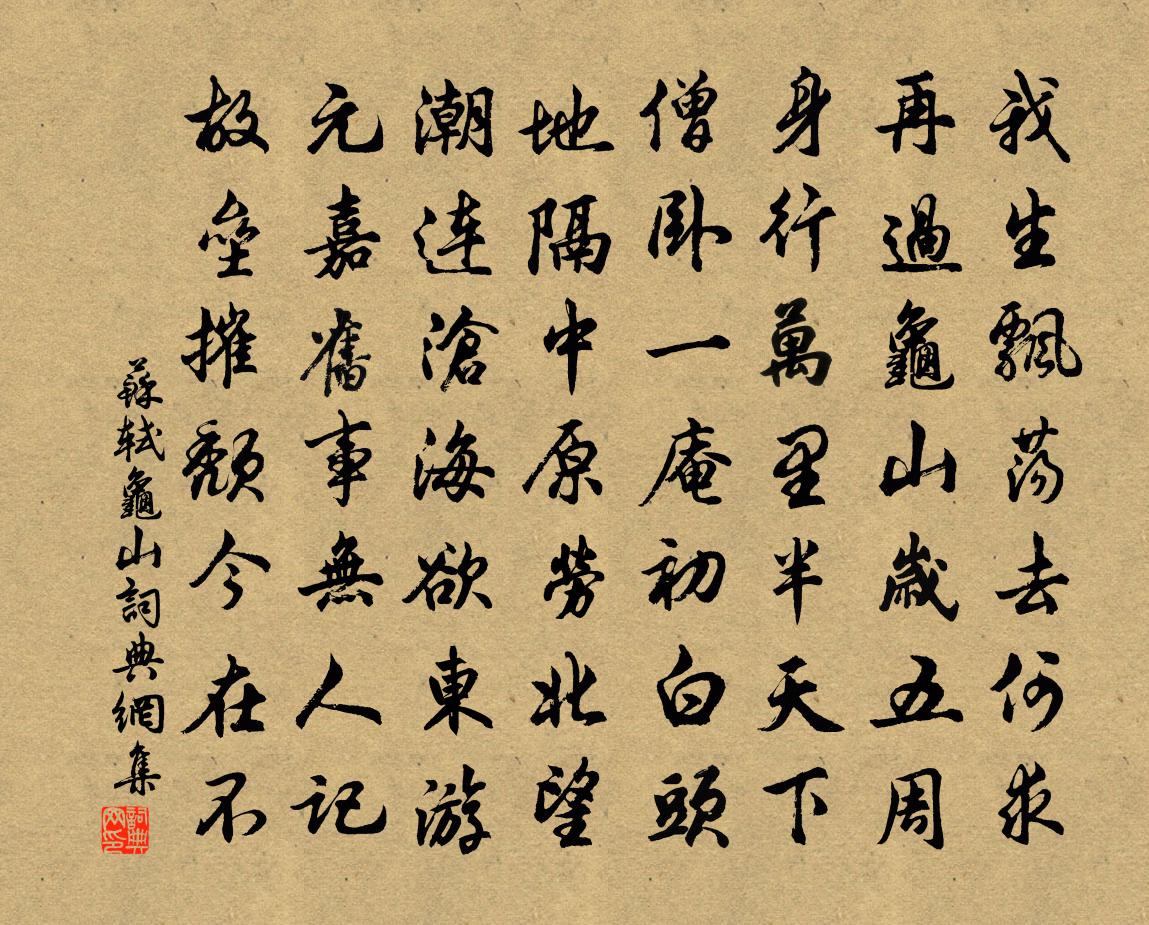 我生飄蕩去何求
再過龜山歲五周
身行萬里半天下
僧臥一庵初白頭
地隔中原勞北望
潮連滄海欲東游
元嘉舊事無人記
故壘摧頹今在不
蘇軾龜山詞典網集
詞典网印